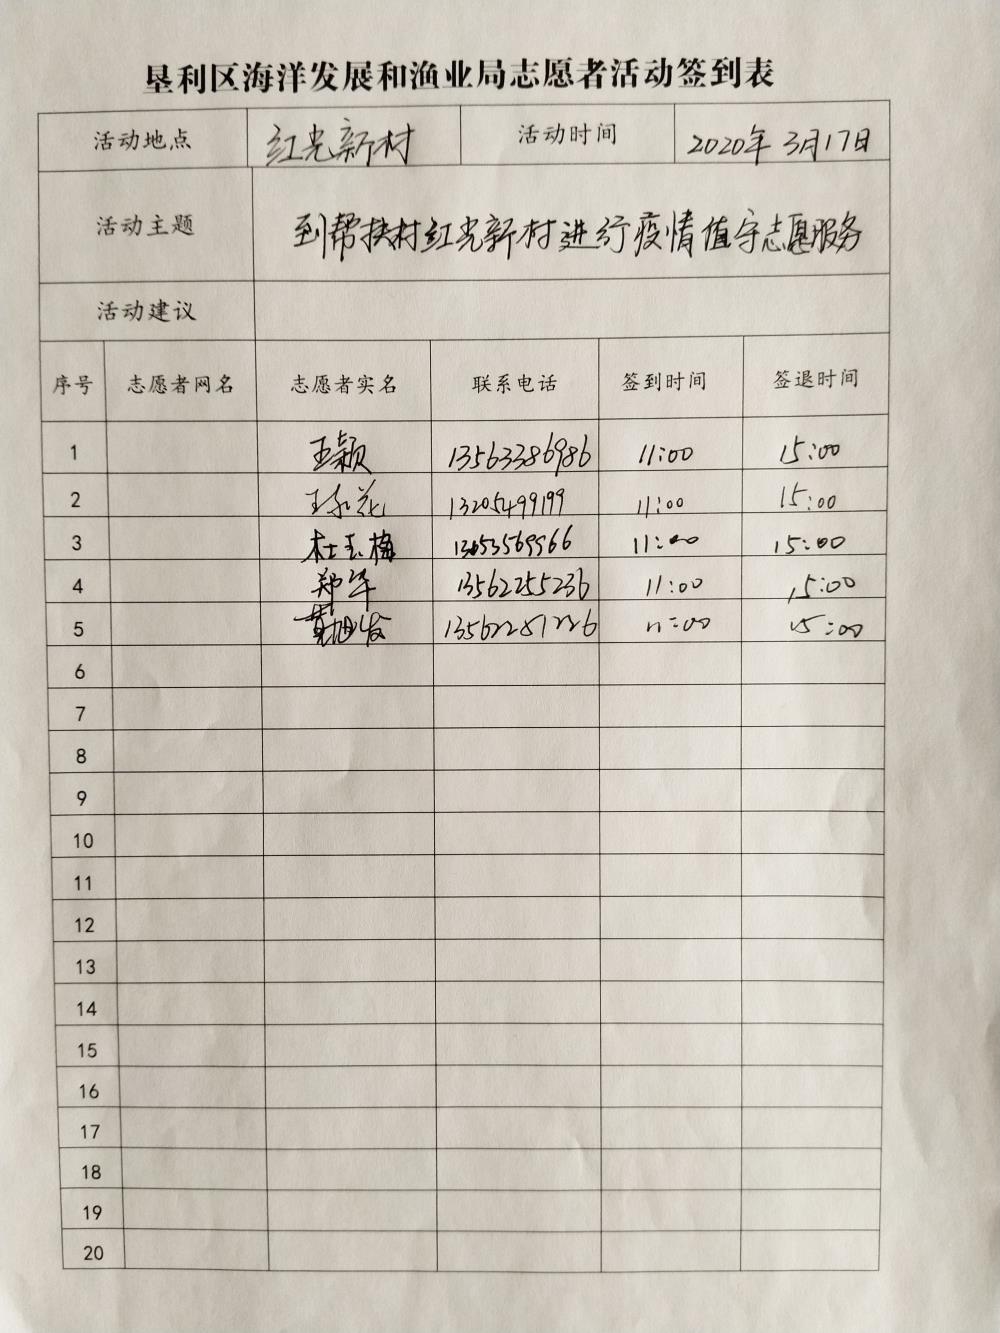 垦利区海洋发展和渔业局志愿者活动签到表
活动地点 红光新村 活动时间 2020年3月17日
活动主题 到帮扶村红光新村进行疫情值守志愿服务
活动建议
序号 志愿者网名 志愿者实名 联系电话 签到时间 签退时间
1 王颖 13563386986 11:00 15:00
2 13205499199 11:00 15:00
3 杜玉梅 11:00 15:00
4 郑华 13562255236 11:00 15:00
5 13562281226 11:00 15:00
6
7
8
9
10
11
12
13
14
15
16
17
18
19
20